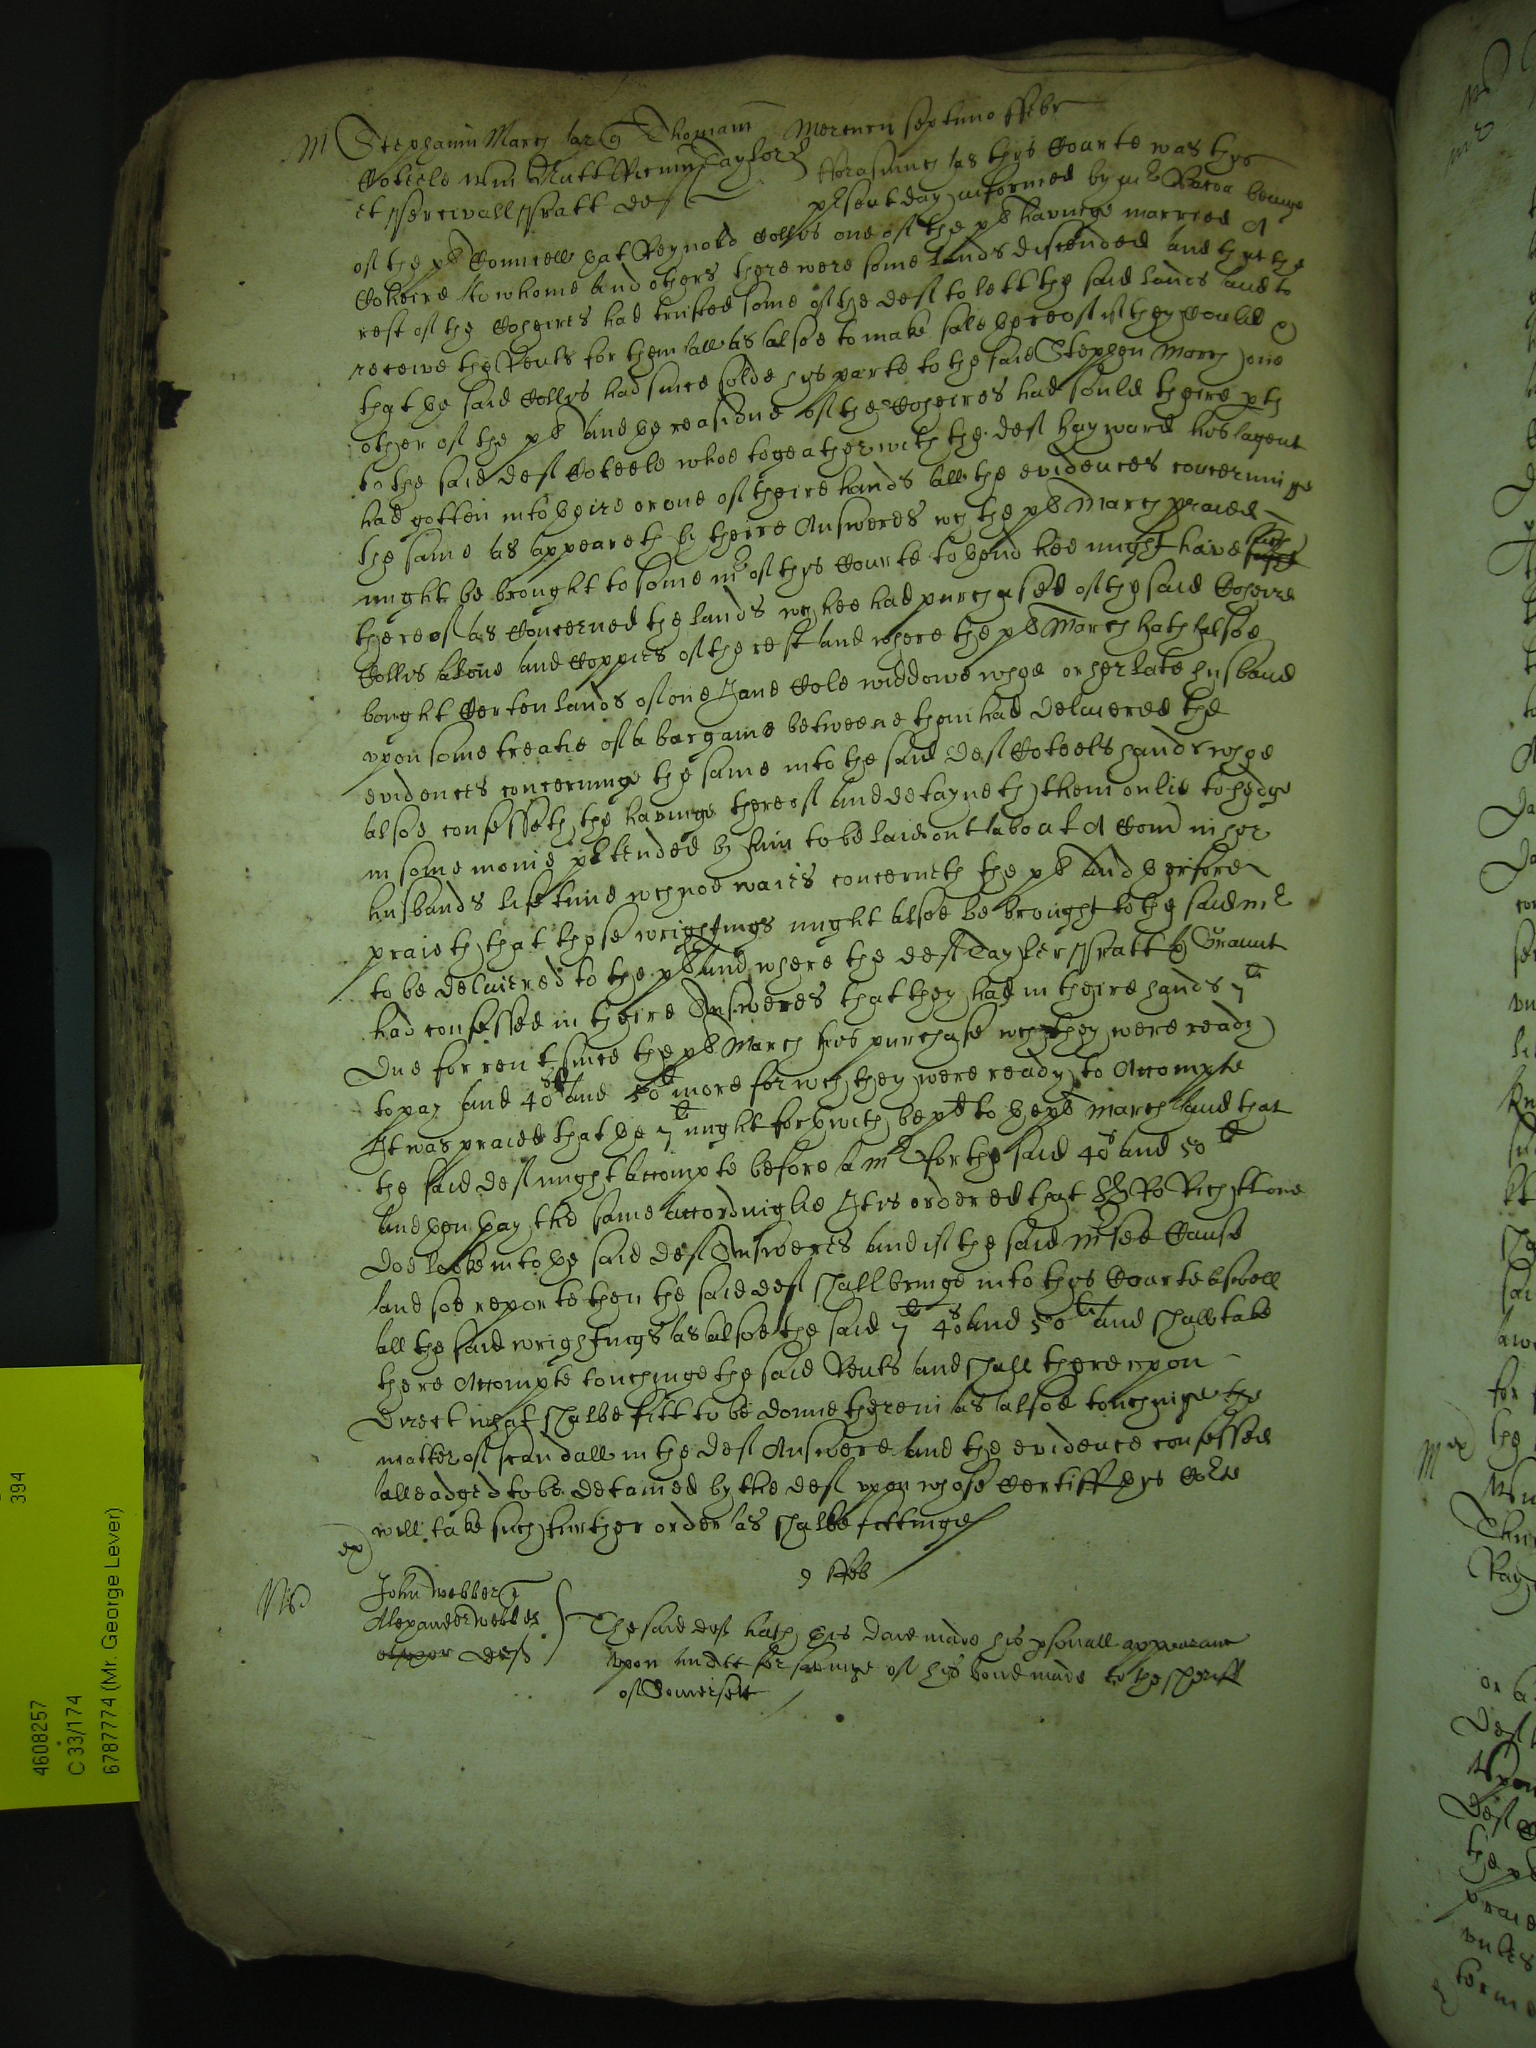 M Stephanum March ar q Thomam Mercurii septimo ffebr
Coteele Willm Rutt ffrem Taylor
et Percivall Pratt def
fforasmuch as thys Courte was thys
plsent day informed by mr Bacon beinge
of the pl Councell that Reynold Collys one of the pl havinge married A
Coheire to whome and others there were some lands discended and that the
rest of the Coheires had trusted some of the def to lett the said lands and to
receive the Rents for them all as alsoe to make sale thereof if they could &
that the said Collys had since solde hys parte to the said Stephen March one
other of the pl and the reasidue of the Coheires had sould theire pts
to the said def Coteele whoe togeather with the def Hayward his agent
had gotten into theire or one of theire hands all the evidences concerninge
the same as appeareth by theire Answeres wch the pl March praied
might be brought to some mr of thys Courte to thend hee might have such
thereof as Concerned the lands wch hee had purchased of the said Coheire
Collis alone and Coppies of the rest and where the pl March hath alsoe
bought Certen lands of one Jane Cole widdowe whoe or her late husband
upon some treatie of a bargaine betweene them had delivered the
evidences concerninge the same into the said def Coteels hands whoe
alsoe confesseth the havinge thereof and detayneth them onlie to hedge
in some monie pltended by him to be laid out about A Comn in her
husbands life time wch noe waies concerneth the pl And therfore
praieth that those wrightings might alsoe be brought to the said mr
to be delivered to the pl and where the def Tayler Pratt & Graunt
had confessed in theire Answeres that they had in theire hands 7li
Due for rent since the pl March his purchase wch they were ready
to pay and 40s and 50li more for wch they were ready to Accompte
It was praied that the 7li might forthwith be pd to the pl March and that
the said def might accompte before a mr for the said 40s and 50li
and then pay the same accordinglie It is ordered that Sr Ro Rich Kt one
doe looke into the said def Answeres and if the said mr see Cause
and soe reporte then the said def shall bringe into thys Courte aswell
all the said wrightings as alsoe the said 7li 40s and 50li and shall take
there Accompte touchinge the said Rents and shall there upon
direct what shalbe fitt to be donne therein as alsoe touchinge the
matter of scandall in the def Answere and the evidence confessed
alleadged to be detained by the def upon whose Certiff thys Corte
will take such further order as shalbe fittinge
ex
9 ffeb
John Webber q
Alexander Webber
def
The said def hath this daie made his psonall appearance
upon an Att for savinge of his bond made to the Sheriff
of Somersett
394
4608257
C 33/174
6787774 (Mr. George Lever)